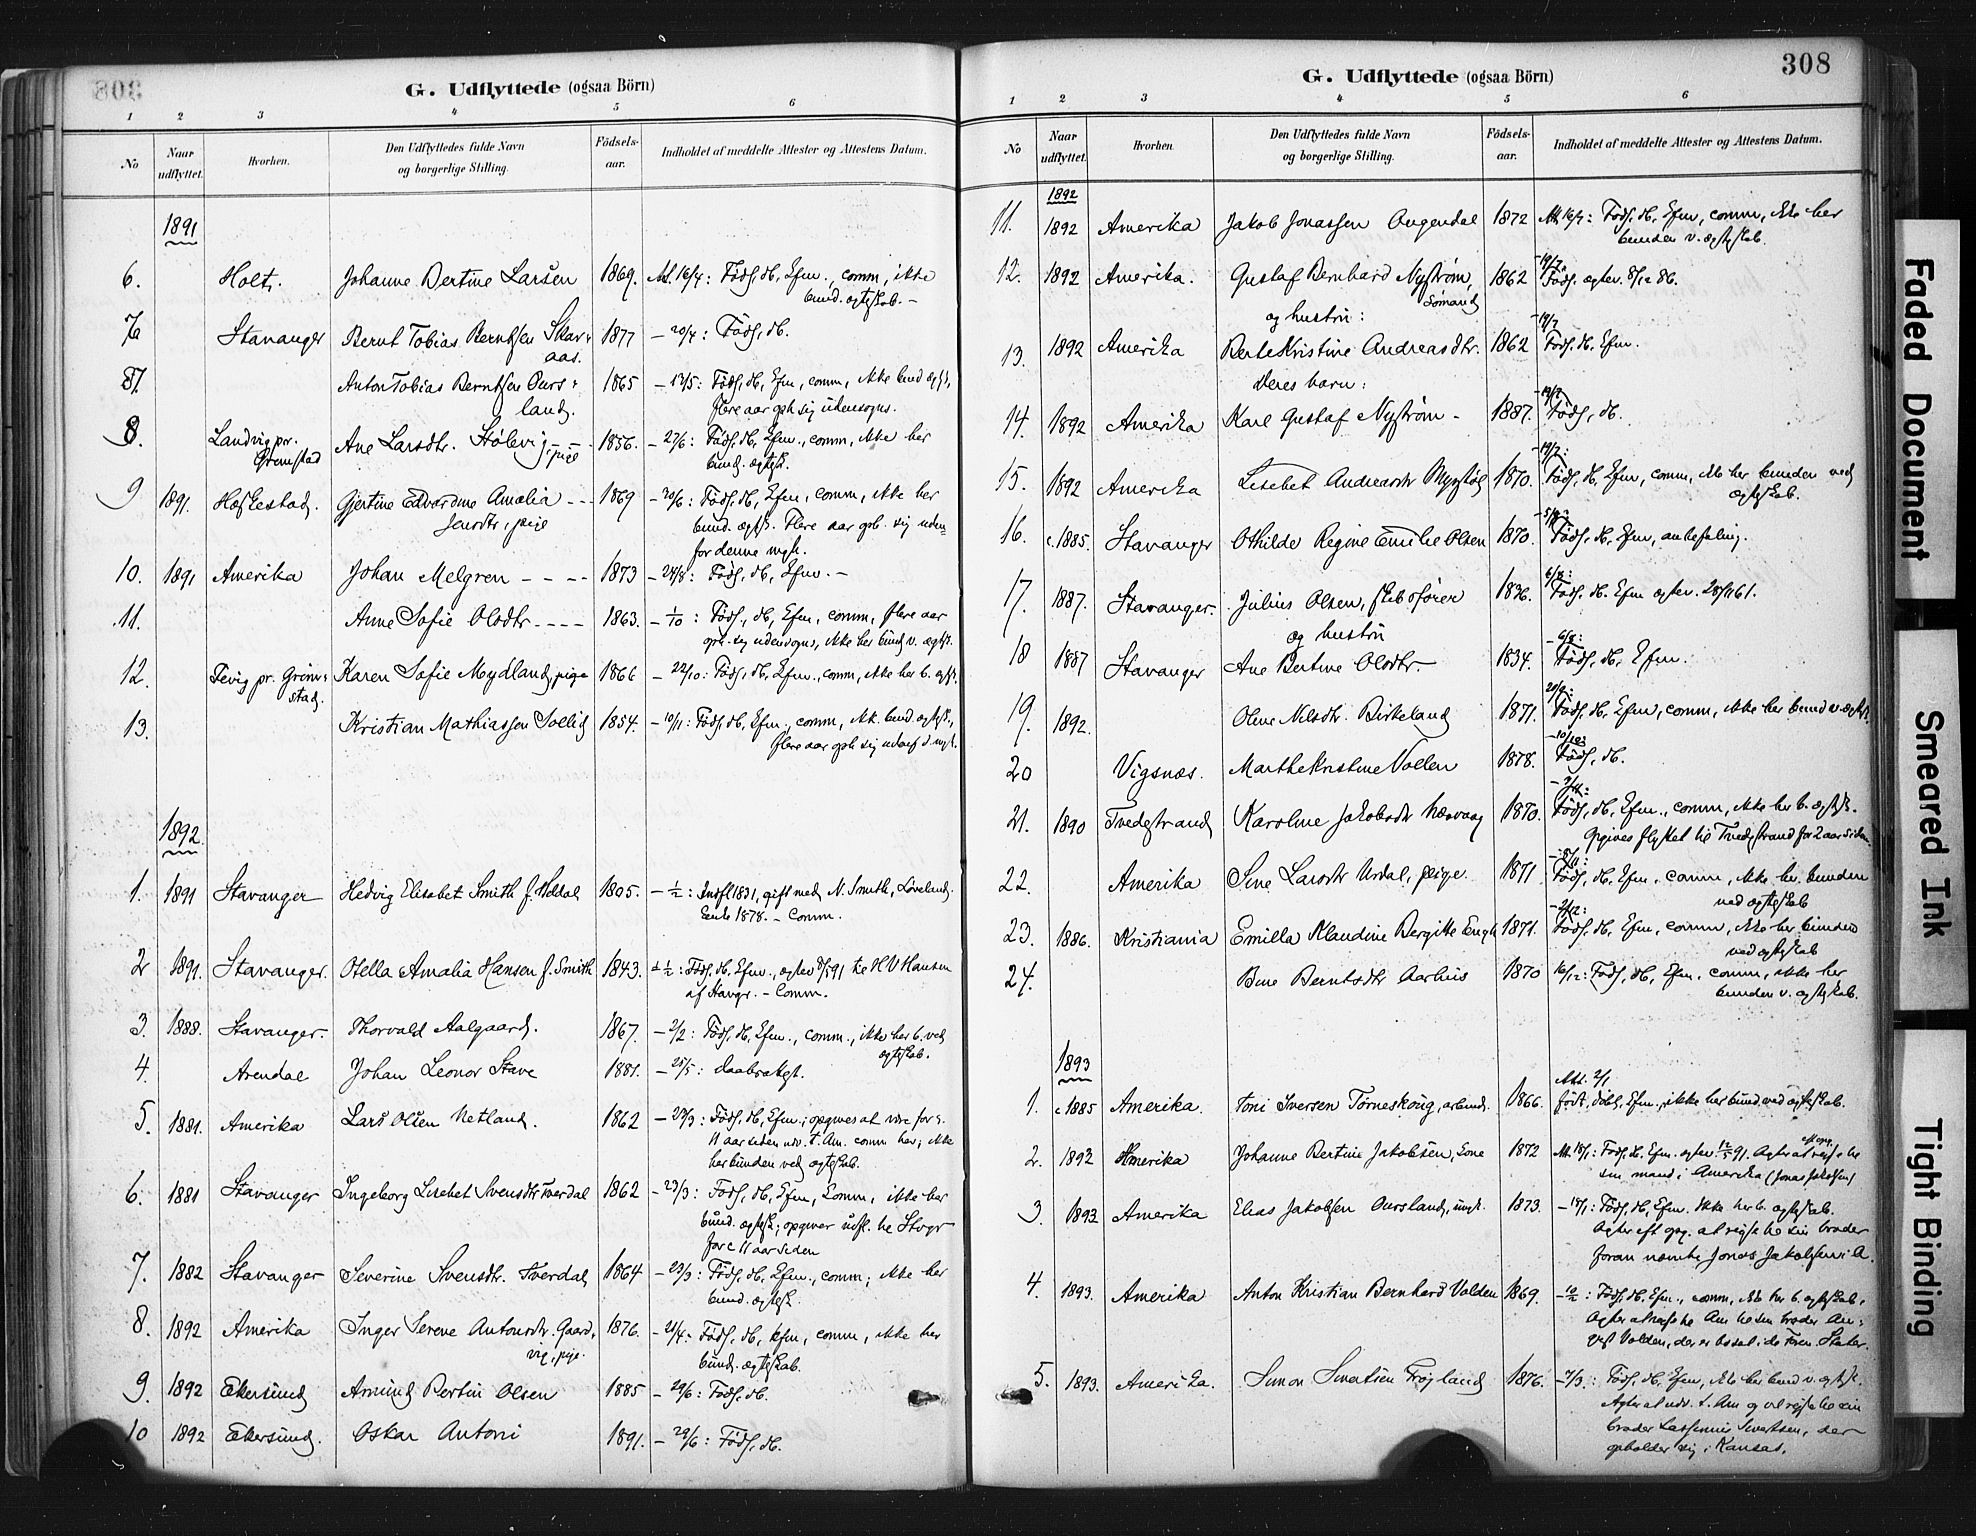 G. Udflyttede (ogsaa Börn)
1 2 3 4 5 6
No Naar udflyttet. Hvorhen. Den Udflyttedes fulde Navn og borgerlige Stilling. Födsels-aar. Indholdet af meddelte Attester og Attestens Datum.
1891
6. Holt. Johanne Bertine Larsen 1869. Att. 16/4: Föds, db, Cfm., comm, ikke
bund. ogtskab. –
7 Stavanger Bernt Tobias Berntsen Skar- 1877 – 20/4: Föds, db.
aas.
Anton Tobias Berntsen Ours- 1865 – 13/5: Föds, db, Cfm, comm, ikke bund
land. flere aar oph sig udensogns.
8. Landvig pr. Ane Larsdtr. Stölevig 1856. – 27/6: Föds, db, Cfm., comm, ikke her
Grimstad pige bund. ogtsk.
9 1891. Hæskestad. Gjertine Edvardine Amalia – – 1869 – 30/6: Föds, db, Cfm, comm, ikke her
pige bund. ogtsk. Flere aar oph. sig uden-
for denne mgh.
10. 1891 Amerika Johan Melgren – – – – 1873 – 24/8: Föds, db, Cfm. –
11. Anne Sofie Olsdtr – – – – 1863. – 1/10: Föds, db, Cfm, comm, flere aar
oph. sig udensogns, ikke her bund v. ogtsk.
12. Fevig pr. Grim- Karen Sofie Mydland, pige 1866 – 22/10: Föds, db, Cfm., comm, ikke her b. ogtsk.
stad.
13. Kristian Mathiassen Sollid 1854. – 10/11: Föds, db, Cfm., comm, ikk. bund. ogtsk.,
flere aar oph sig
1892
1. 1891 Stavanger Hedvig Elisabet Smith f. Holdal 1805. – 1/2: Indfl 1831, gift med N. Smith, Löveland.
Enke 1878. – Comm.
2 1891. Stavanger. Otella Amalia Hansen f. Smith 1843. 1/2: Föds, db, Cfm., til H V Hansen
af Stavgr. – Comm.
3. 1888. Stavanger. Thorvald Aalgaard. 1867. – 2/2: Föds, db, Cfm., comm., ikke her b. ved
ogtskab.
4. Arendal Johan Leonor Stave 1881. – 25/5: daabsattest.
5. 1881. Amerika Lars Olsen Netland. 1862 – 23/3: Föds, db, Cfm.; opgives at være for c.
11 aar siden udv. t. Am. comm her; ikke
her bunden ved ogtskab.
6. 1881 Stavanger Ingeborg Lisebet Svensdtr Tverdal 1862 – 23/3: Föds, db, Cfm, comm, ikke her
bund. ogtsk; opgiver udfl. til Stvgr
for c 11 aar siden
7. 1882 Stavanger Severine Svensdtr. Tverdal 1864 – 23/3: Föds, db, Cfm., comm; ikke her
bund. ogtsk.
8. 1892 Amerika Inger Serene Antonsdtr. Gaard- 1876. – 21/4: Föds, db, kfm, comm, ikke her
vig, pige. bund. ogtskab.
9. 1892 Ekersund Amund Bertin Olsen 1885 – 29/6: Föds, db.
10 1892 Ekersund. Oskar Antoni 1891. – 29/6: Föds, db.
308
G. Udflyttede (ogsaa Börn)
1 2 3 4 5 6
No Naar udflyttet. Hvorhen Den Udflyttedes fulde Navn og borgerlige Stilling. Födsels-aar. Indholdet af meddelte Attester og Attestens Datum.
1892
11. 1892 Amerika Jakob Jonassen Ougendal 1872 Att 16/7: Föds, db, Cfm, comm, ikke her
bunden v. ogtskab.
12. 1892 Amerika. Gustaf Bernhard Nyström, 1862 – 19/7 Föds. ogtev. 8/12 86.
Sömand
og hustru:
13. 1892 Amerika Berte Kristine Andreasdtr. 1862 – 19/7 Föds, db, Cfm.
Deres barn:
14. 1892 Amerika Karl Gustaf Nyström – 1887. – 19/7 Föds, db.
15. 1892 Amerika Lisebet Andreasdtr 1870. 19/7: Föds, db, Cfm, comm, ikke her bunden ved
ogtskab.
16. c. 1885. Stavanger Othilde Regine Emilie Olsen 1870. Föds, db, Cfm, anbefaling.
17. 1887. Stavanger. Julius Olsen, skibsförer 1836. 6/8: Föds. db. Cfm ogtev. 28/11 61.
og hustru
18 1887 Stavanger Ane Bertine Olsdtr 1834. – 6/8: Föds, db, Cfm.
19. 1892. Oline Nilsdtr. Birkeland 1871. 20/9: Föds, db, Cfm, comm, ikke her bund v. ogtsk.
20 Vigsnæs. Marthe Kristine Vollen 1878. – 10/10: Föds, db.
21. 1890 Tvedestrand Karoline Jakobsdtr Nesvaag 1870. Föds, db, Cfm., comm, ikke her b. ogtsk.
Opgives flyttet til Tvedestrand for 2 aar siden
22. Amerika Sine Larsdtr Urdal, pige 1871 Föds, db, Cfm. comm, ikke her bunden
ved ogtskab
23. 1886. Kristiania Emilla Klaudine Bergitte Engh 1871. Föds, db, Cfm, comm, ikke her bunden
ved ogtskab
24. Bine Berntsdtr Aarhus 1870 16/12: Föds, db, Cfm. comm, ikke her
bunden v. ogtskab.
1893
Att. 2/1
1. c. 1885 Amerika. Toni Iversen Törneskoug, arbmd. 1866. född, döbt, Cfm., ikke her bund. ved ogtskab.
2. 1892 Amerika Johanne Bertine Jakobsen, kone 1872 Att. 18/1: Föds, db, Cfm. ogtev. 91. Agter at reise til
sin mand i Amerika (Jonas Jakobsen)
3. 1893 Amerika Elias Jakobsen Oursland, ungk. 1873. – 18/1: Föds, db, Cfm. Ikke her b. ogtskab.
Agter eft opg. at reise til sin broder
foran nævnte Jonas Jakobsen i A.
4. 1893. Amerika Anton Kristian Bernhard Valden 1869. Föds, db, Cfm., comm, ikke her b. ogtskab,
Agter at reise til Am til sin broder An-
Valden, der er bosat i de Foren. Stater.
5. 1893. Amerika. Simon Sivertsen Frøyland 1876. – 7/3: Föds, db, Cfm, ikke her bund v. ogtsk.
Agter at udv. t. Am og vil reise til sin
broder Sivertsen, der
opholder sig i Kansas.
Faded Document
Smeared Ink
Tight Binding